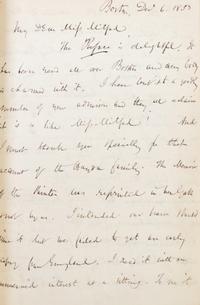 Boston, Dec 6. 1853
My Dear Miss Mitford!
The Preface is delightful. It
has been read all over Boston and every body
is charmed with it. I have sent it a goodly
number of your admirers and they all exclaim
it is so like Miss Mitford! And
I must thank you specially for that
account of the Haydon family. The Memoir
of the Painter was reprinted in New York
not by us. I intended our house should
it but we failed to get an early
copy from England. I read it with an
interest at a sitting. To me it